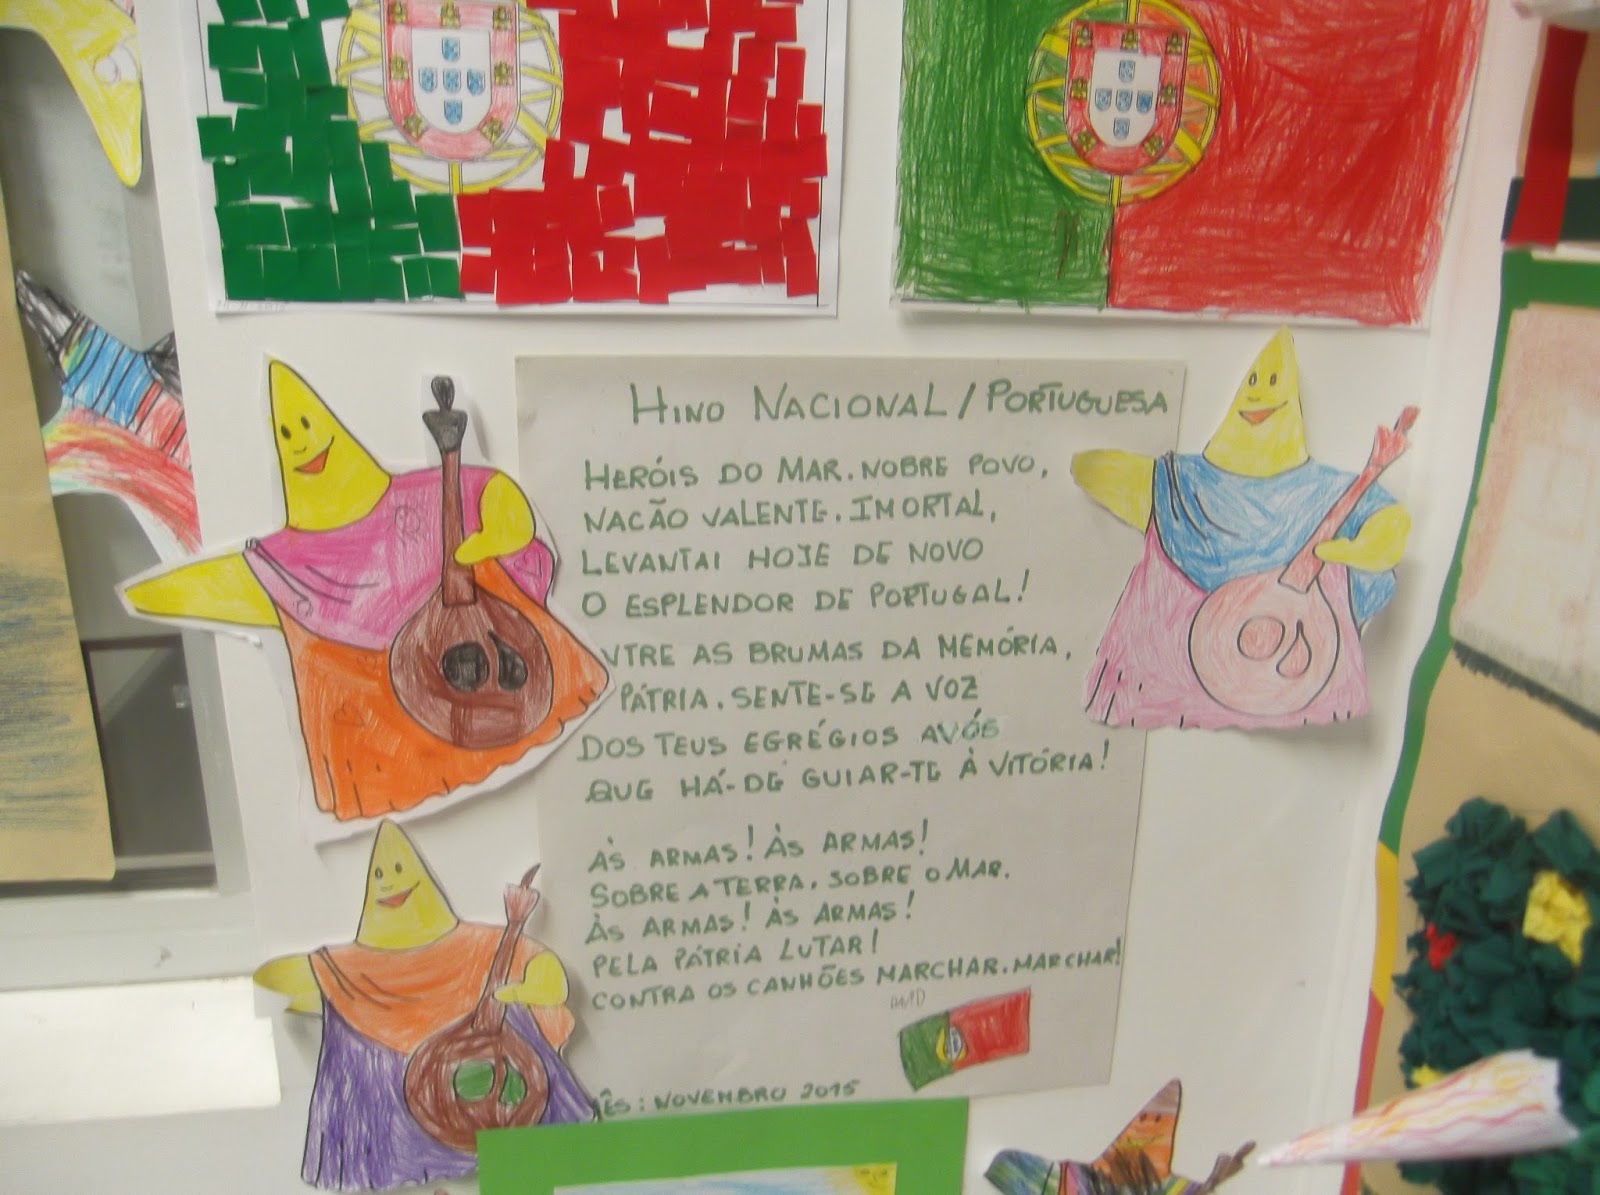 HINO NACIONAL / PORTUGUESA
HERÓIS DO MAR. NOBRE POVO,
NACÃO VALENTE. IMORTAL,
LEVANTAI HOJE DE NOVO
O ESPLENDOR DE PORTUGAL!
NTRE AS BRUMAS DA MEMÓRIA,
PÁTRIA. SENTE-SE A VOZ
DOS TEUS EGRÉGIOS AVÓS
QUE HÁ-DE GUIAR-TE À VITÓRIA!
ÀS ARMAS! ÀS ARMAS!
SOBRE A TERRA. SOBRE O MAR.
ÀS ARMAS! ÀS ARMAS!
PELA PÁTRIA LUTAR!
CONTRA OS CANHÕES MARCHAR. MARCHAR!
DAVID
ÊS: NOVEMBRO 2015